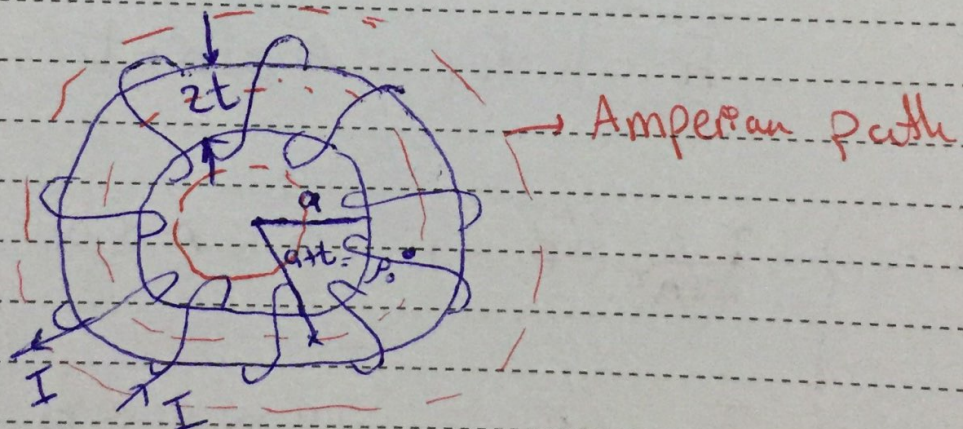 2t
→ Amperian path
a
a+t = ρ₀
I
I